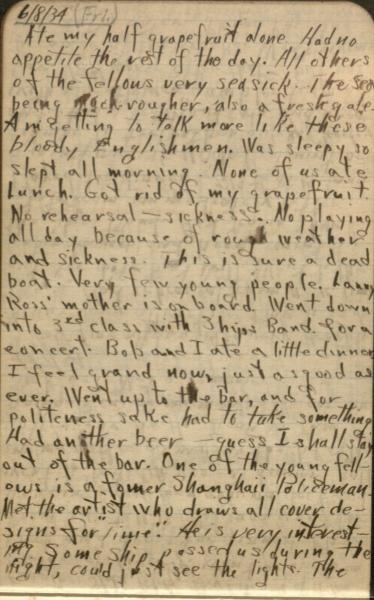 6/8/34 (Fri.)
Ate my half grapefruit alone. Had no
appetite the rest of the day. All others
of the fellows very seasick. The sea
being much rougher, also a fresh gale.
Am getting to talk more like these
bloody Englishmen. Was sleepy so
slept all morning. None of us ate
Lunch. Got rid of my grapefruit.
No rehearsal — sickness. No playing
all day because of rough weather
and sickness. This is sure a dead
boat. Very few young people. Lanny
Ross' mother is on board. Went down
into 3rd class with Ships Band for a
concert. Bob and I ate a little dinner
I feel grand now, just as good as
ever. Went up to the bar, and for
politeness sake had to take something
Had another beer — guess I shall stay
out of the bar. One of the young fell-
ows is a fomer Shanghaii Policeman.
Met the artist who draws all cover de-
signs for "Time". He is very interest-
ing. Some ship passed us during the
night, could just see the lights. The